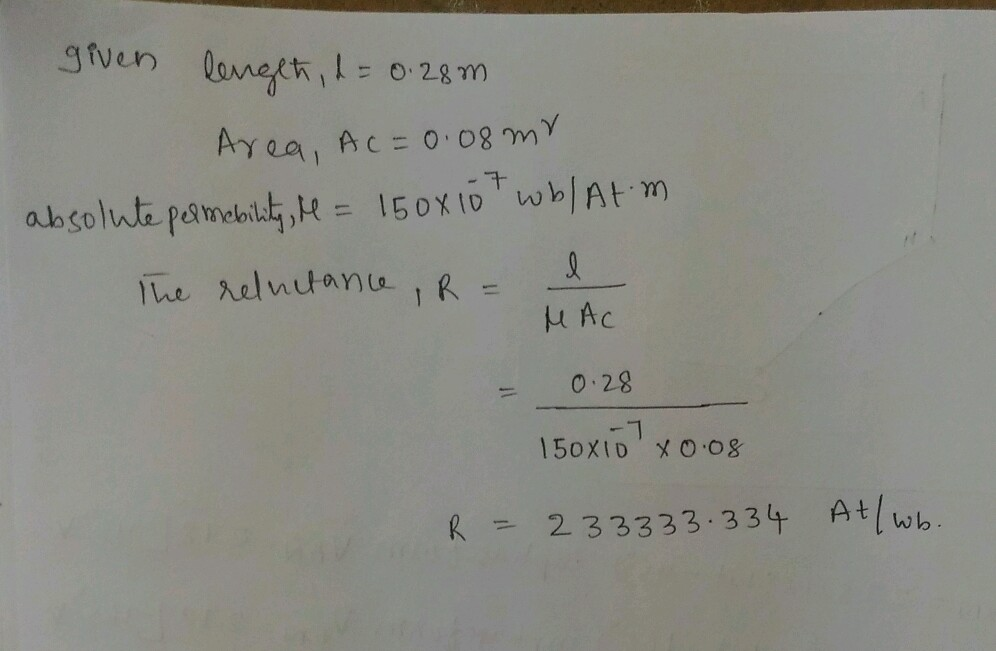 given length, l = 0.28m
Area, Ac = 0.08 m²
absolute permebility, μ = 150×10⁻⁷ wb/At.m
The reluctance, R = l / μ Ac
= 0.28 / 150×10⁻⁷ × 0.08
R = 233333.334 At/wb.